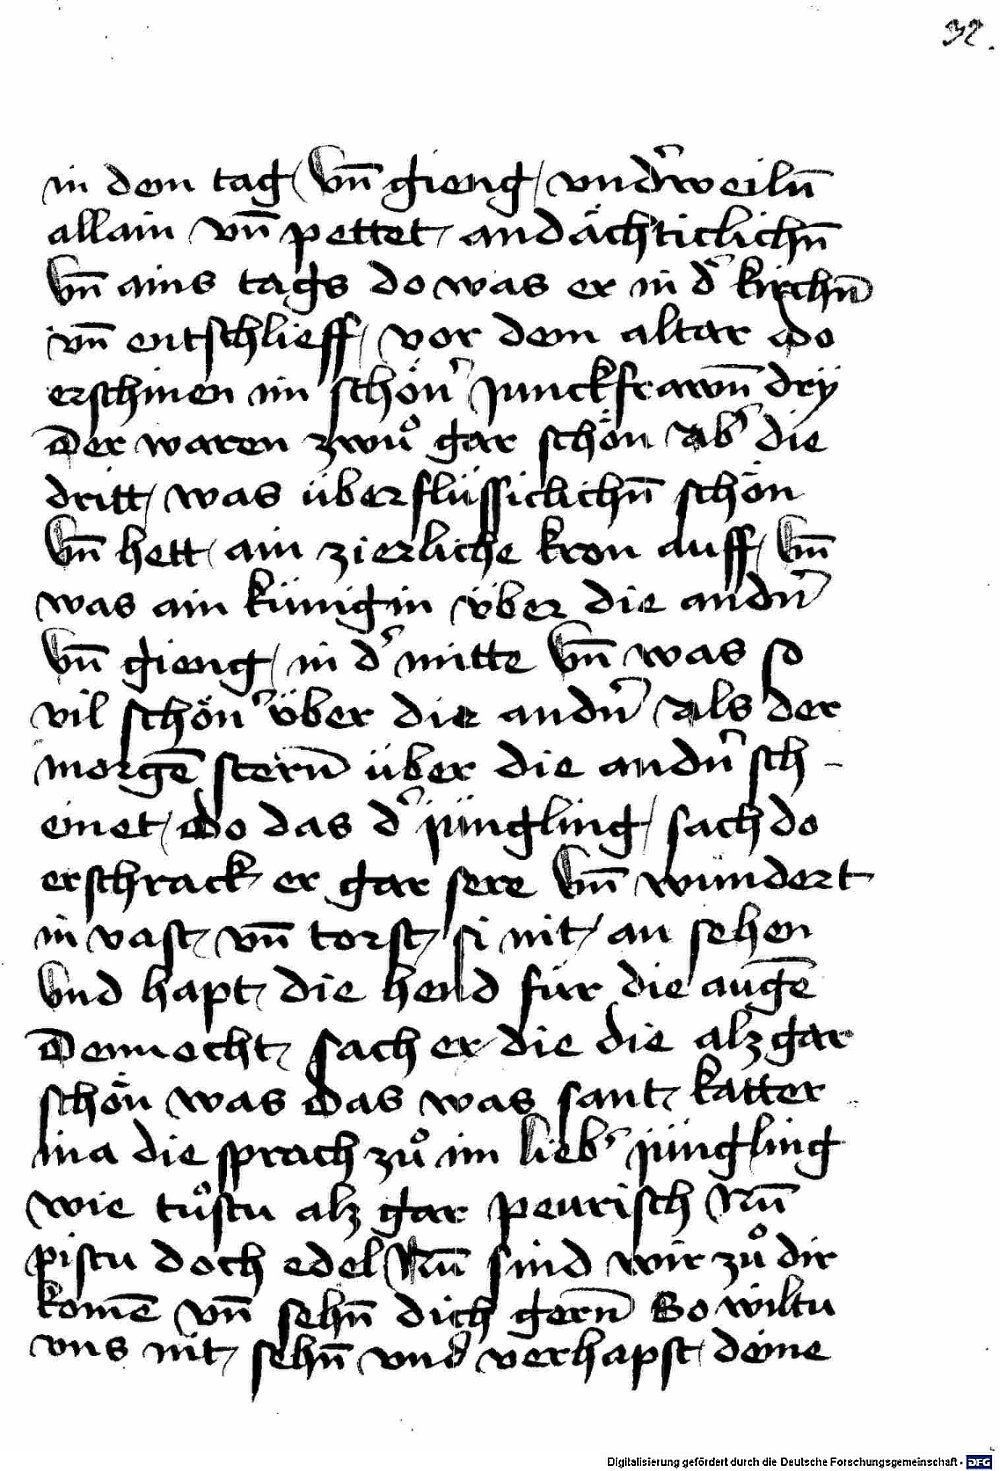 32.
in dem tag / vn̄ gieng / vnd̓weiln̄
allain / vn̄ pettet / andächticlichn̄
vn̄ ains tags do was er in d̓ kirchn̄
vn̄ entschlieff / vor dem altar do
erschinen im schön̓ junckfrawn̄ drÿ
Der waren zwuͦ gar schön / ab̓ die
dritt / was überflüssiclichn̄ schön
vn̄ hett / ain zierliche kron auff / vn̄
was ain künigin / über die andn̓
vn̄ gieng / in d̓ mitte vn̄ was so
vil schön̓ über die andn̓ / als der
morgē stern̄ über die andn̓ sch-
einet / do das d̓ jüngling / sach do
erschrack er gar sere vn̄ wundert
in vast / vn̄ torst / si nit / an sehen
vnd hapt / die hend für die augē
Dennocht / sach er die die alz gar
schön was das was sant / katter
ina die sprach zuͦ im lieb̓ jüngling
wie tuͦstu alz gar peurisch Nū
pistu doch edel Nū sind wir zuͦ dir
komē vn̄ sehn̄ dich gern̄ So wiltu
vns nit / sehn̄ vnd verhapst / deine
Digitalisierung gefördert durch die Deutsche Forschungsgemeinschaft - DFG